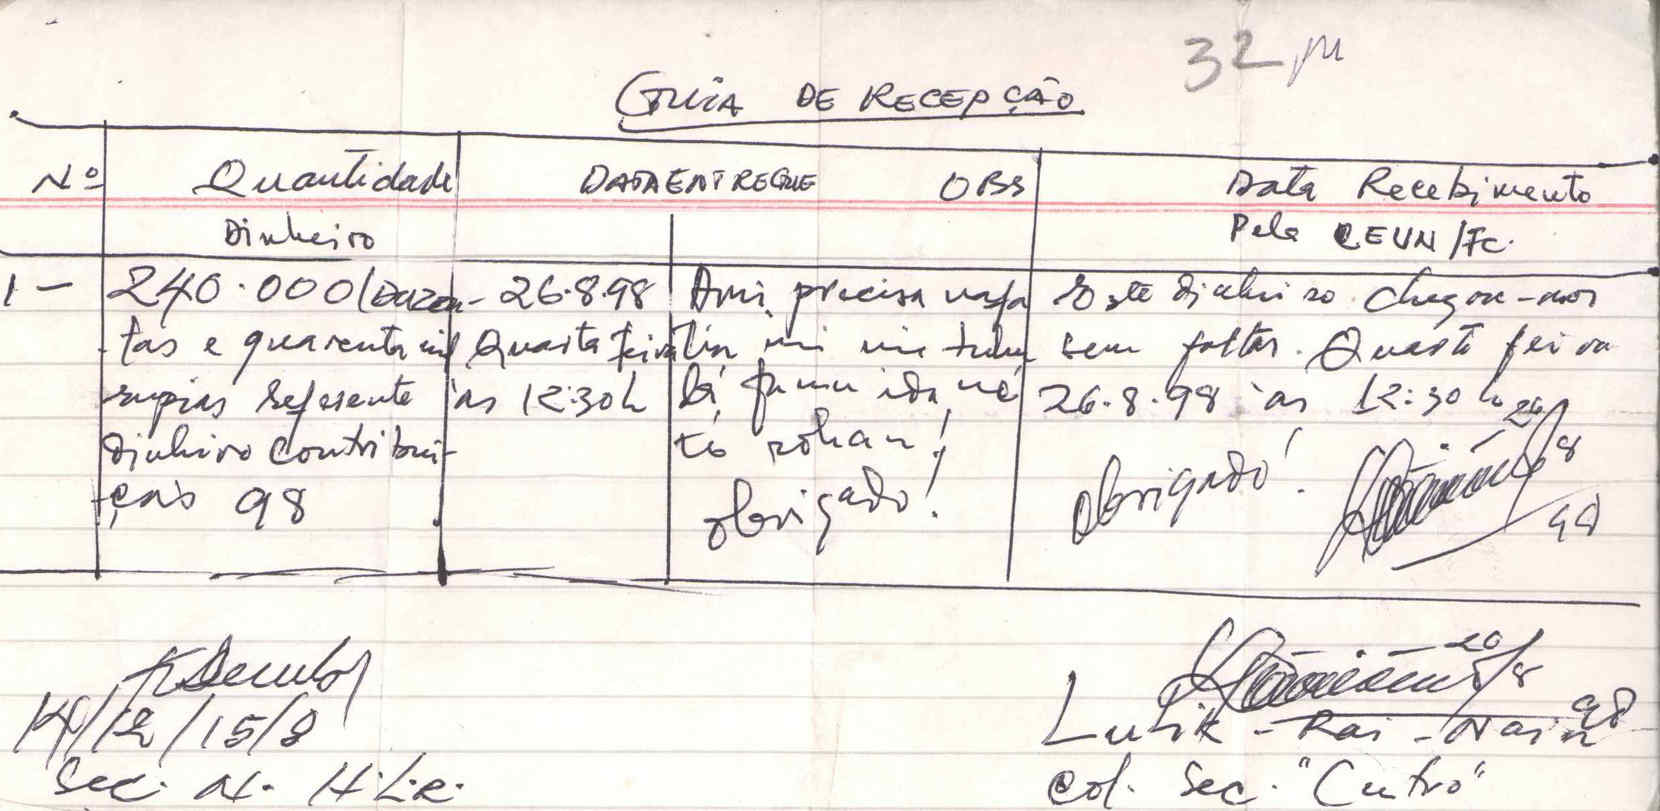 32
GUIA DE RECEPÇÃO
Nº Quantidade Dinheiro
DATA ENTREGUE OBS
Data Recebimento
Pela CEUN/FC.
1 - 240.000 (Duzen-
tas e quarenta mil
rupias referente
Dinheiro Contribui-
ções 98
26.8.98
Quarta feira
às 12:30h
Ami precisa
lia mi
tó rohan!
obrigado!
Este dinheiro chegou-nos
sem faltar. Quarta feira
26.8.98 às 12:30 h
Obrigado!
26/8
98
26/8
98
K/12/15/8
Sec. N. H.L.R.
Lulik - Rai - Nain
Col. Sec. "Centro"